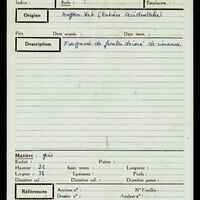 Indice : Salle : Emplacem. :
Origine Angkor Vat (Entrée occidentale)
Prix : Date acquis. : Date ins. :
Description Fragment de fronton décoré de rinceaux.
Matière : grès
Enduit : Patine :
Hauteur : haut. tenon : Longueur :
Largeur : 38 Epaisseur : Poids :
Diamètre col. : Diamètre panse :
Références Anciens n° : N° Fouilles :
Dossier n° : Analyse n° :